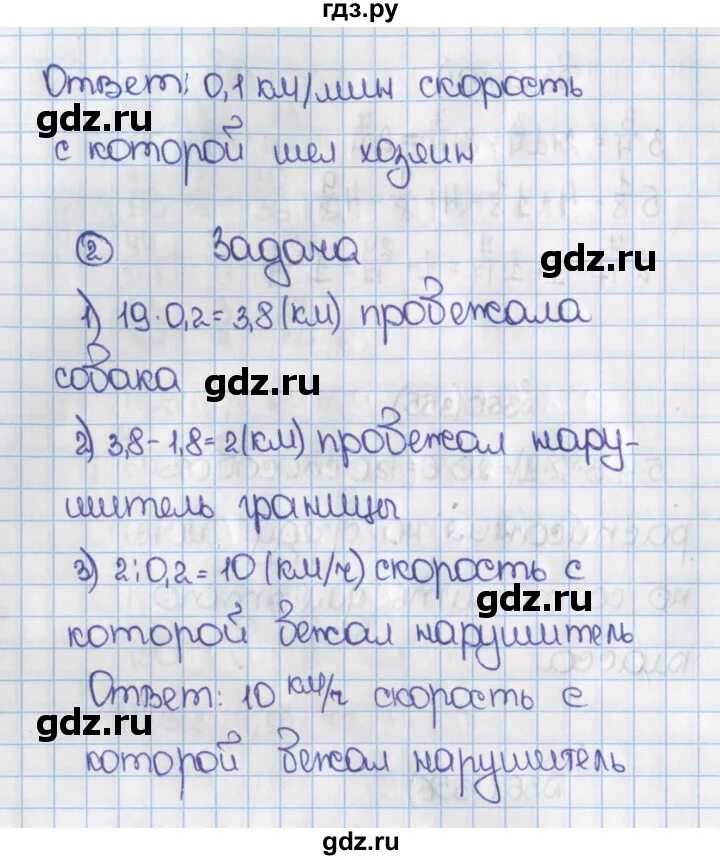 гдз.ру
Ответ: 0,1 км/мин скорость
gdz.ru
с которой шел хозяин
2 Задача
gdz.ru
1) 19·0,2=3,8(км) пробежала
собака
gdz.ru
2) 3,8-1,8=2(км) пробежал нару-
шитель границы
3) 2:0,2=10(км/ч) скорость с
gdz.ru
которой бежал нарушитель
Ответ: 10 км/ч скорость с
gdz.ru
которой бежал нарушитель
gdz.ru